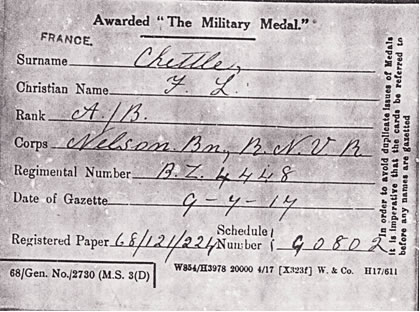 Awarded "The Military Medal."
FRANCE.
Surname Chettle,
Christian Name F. L.
Rank A/B.
Corps Nelson Bn, R.N.V.R
Regimental Number B.Z. 4448
Date of Gazette 9-7-17
Registered Paper 68/121/224 Schedule Number 90802
68/Gen. No./2730 (M.S. 3(D)
W854/H3978 20000 4/17 [X323f] W. & Co. H17/611
In order to avoid duplicate issues of Medals
it is imperative that the cards be referred to
before any names are gazetted